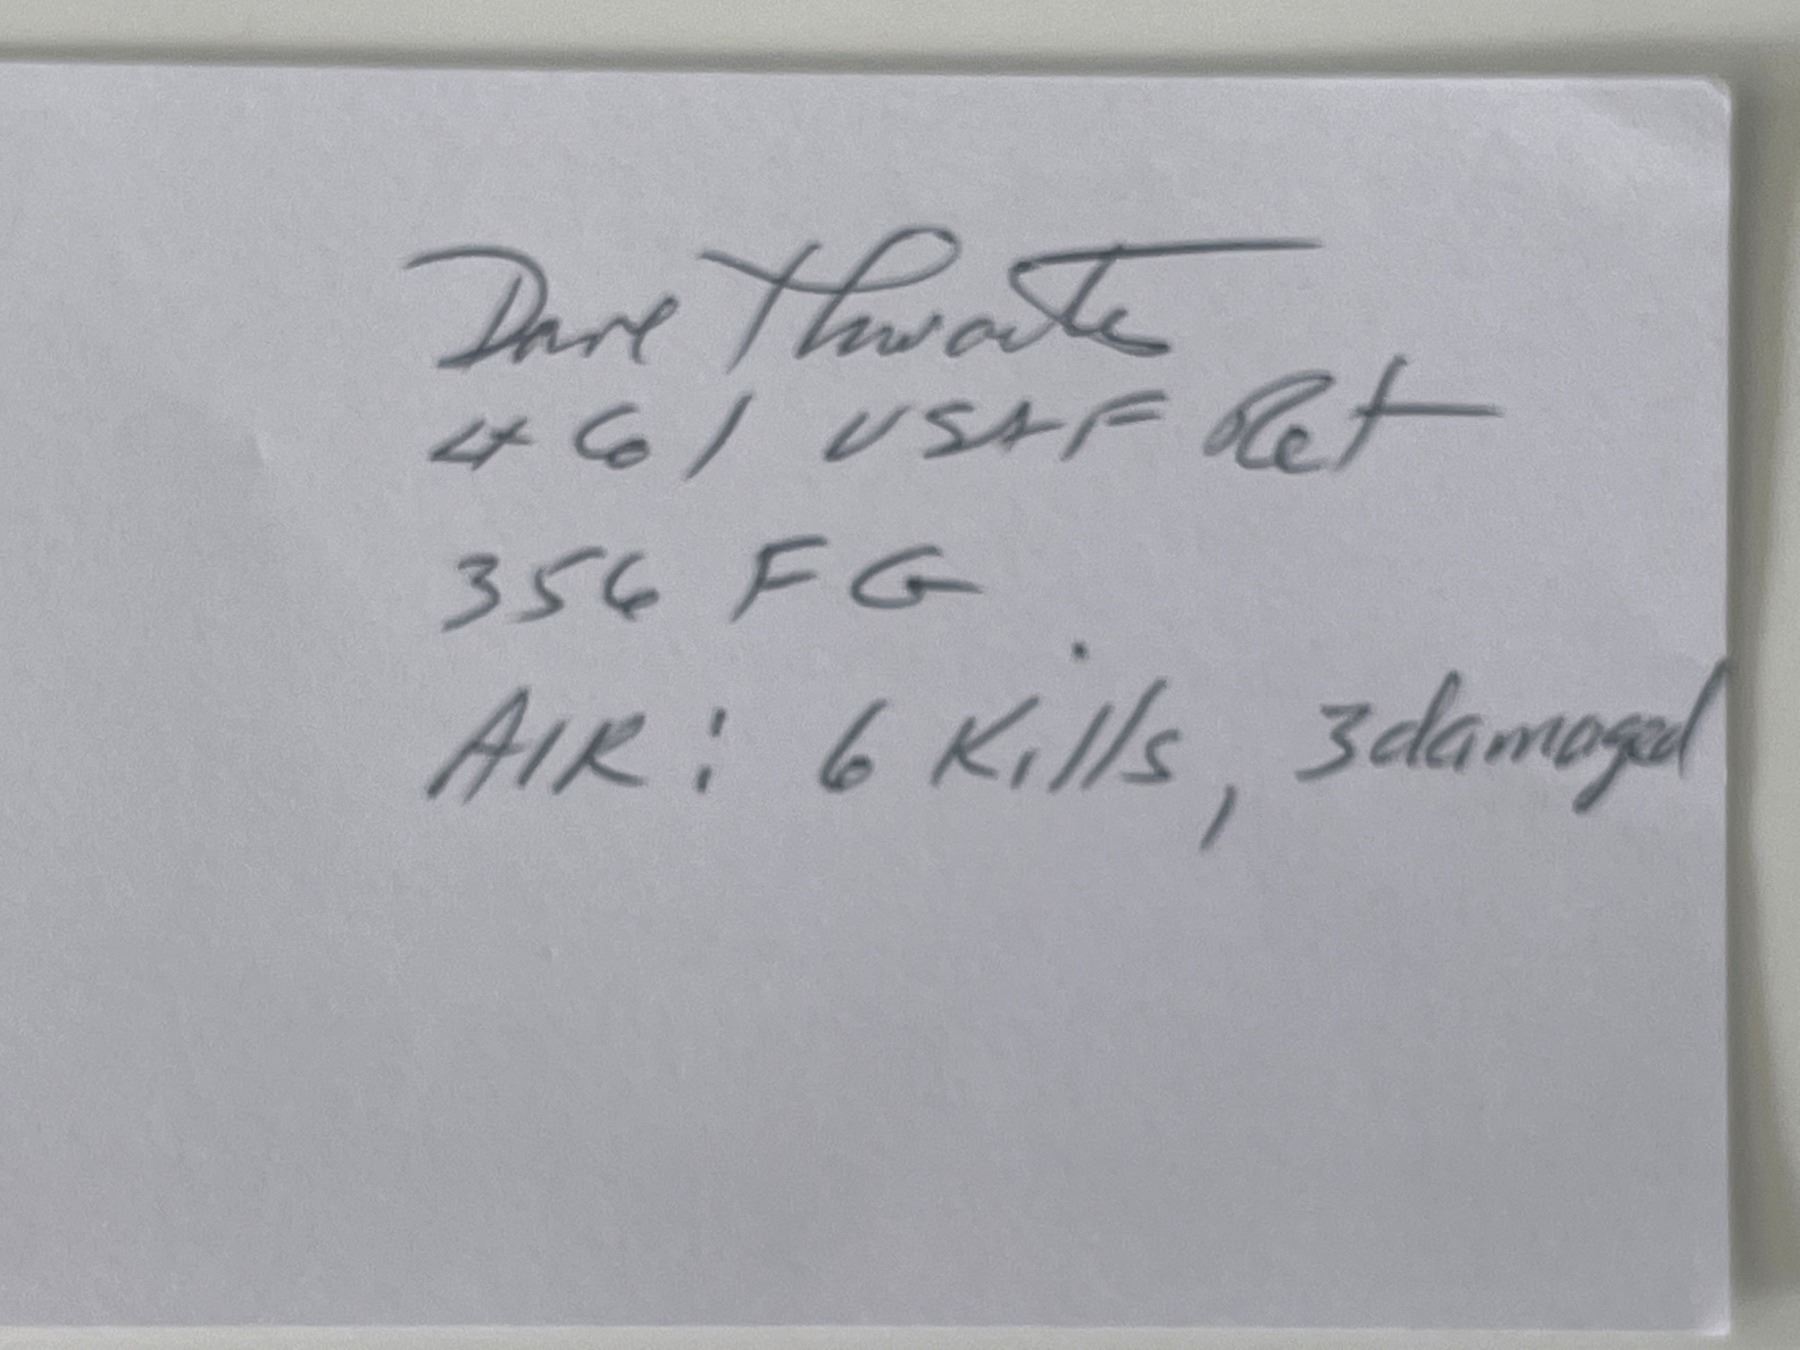 Dave Thwaite
461 USAF Ret
356 FG
AIR: 6 Kills, 3 damaged